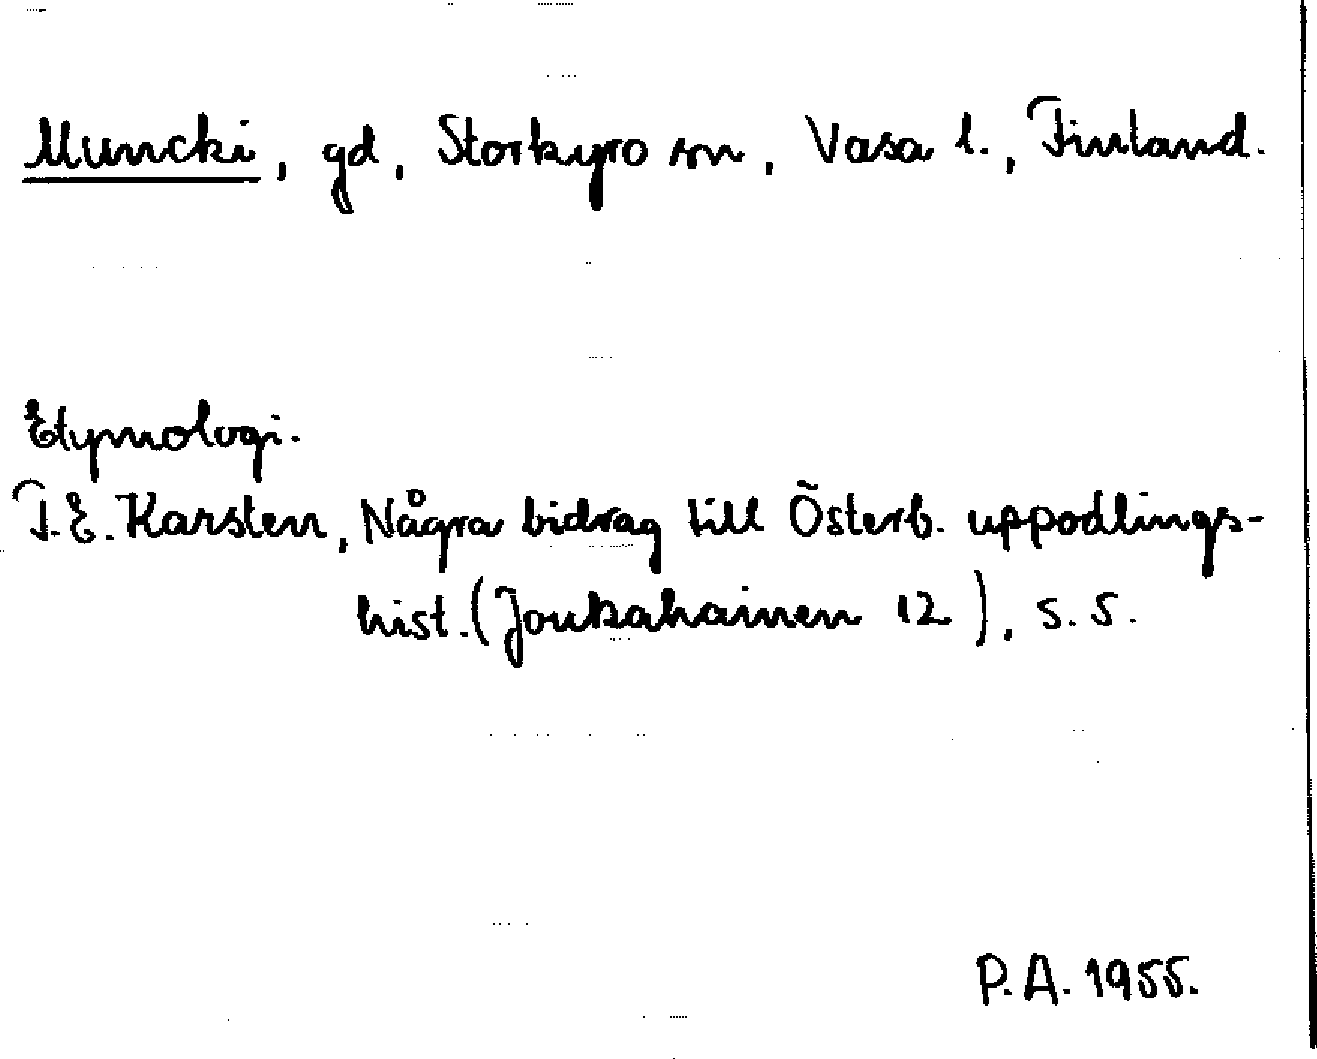 Muncki, gd, Storkyro sn, Vasa l., Finland.
Etymologi.
T.E. Karsten, Några bidrag till Österb. uppodlings-
hist. (Joukahainen 12), s. 5.
P.A. 1955.